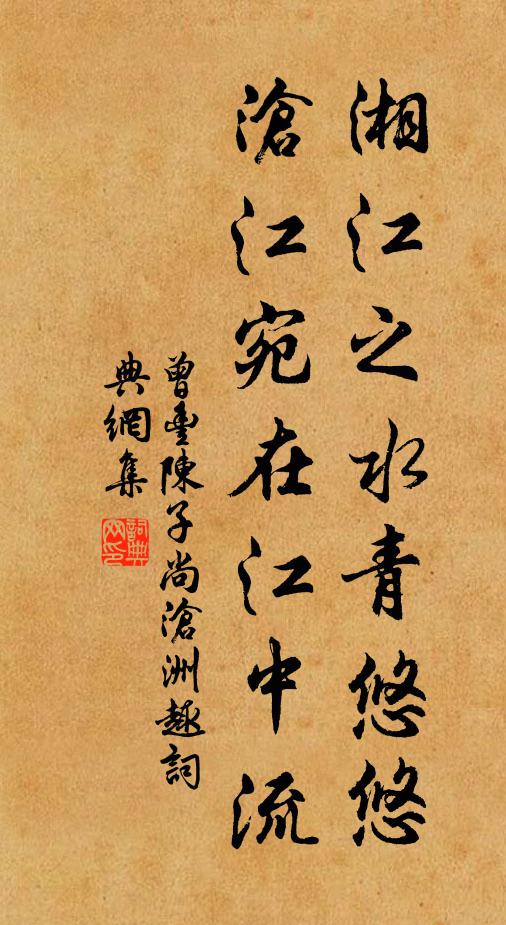 湘江之水青悠悠
滄江宛在江中流
曾豊陳子尚滄洲趣詞
典網集
詞典網印